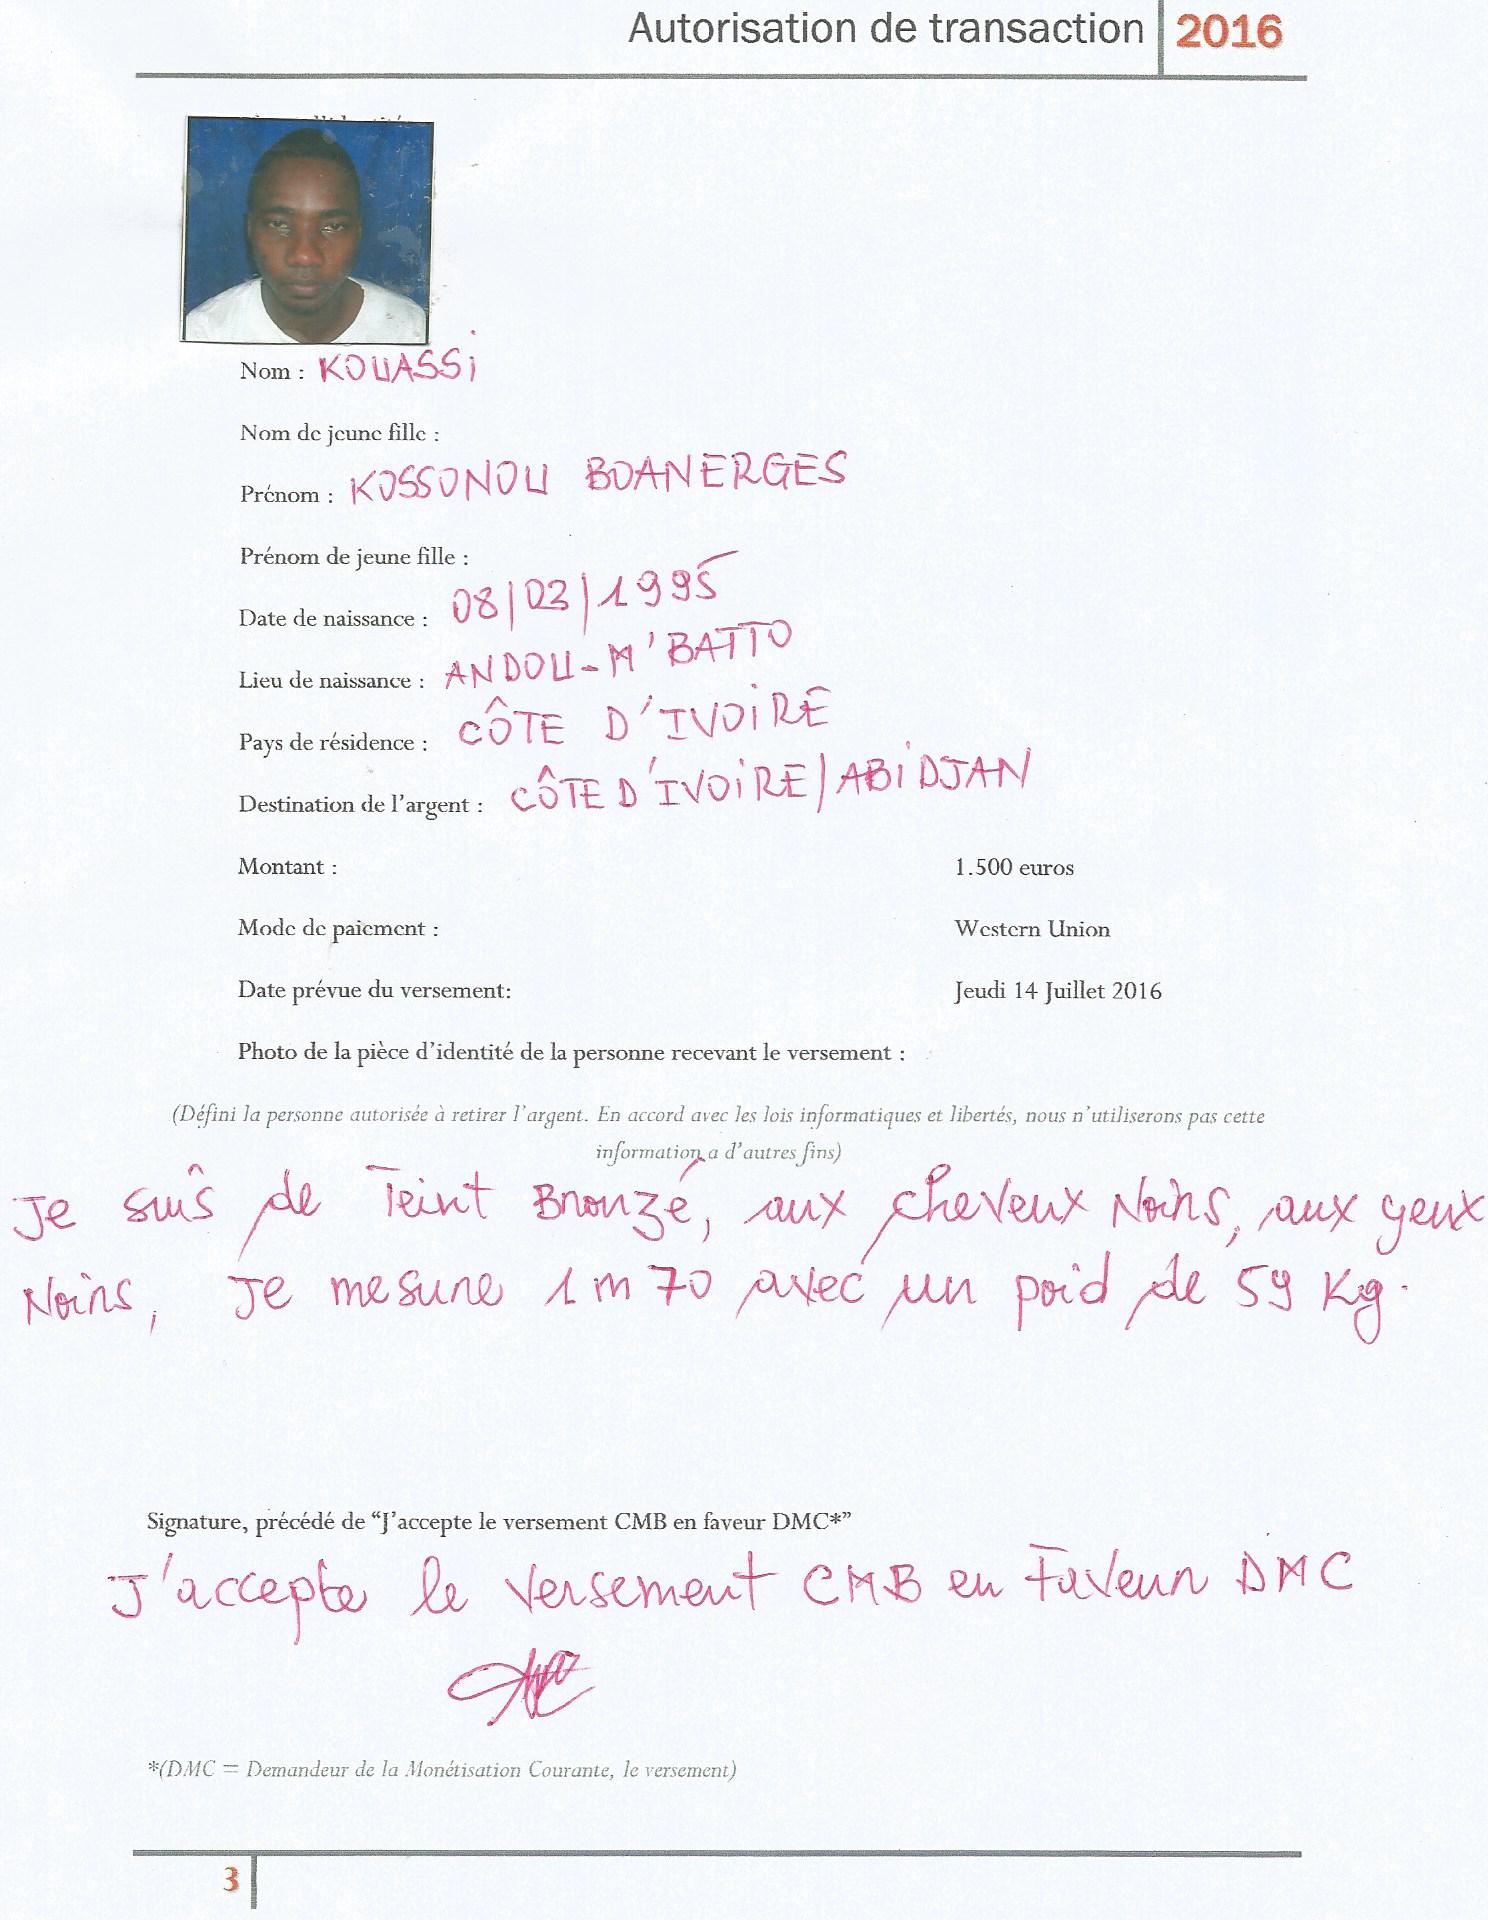 Autorisation de transaction 2016
Nom : KOUASSi
Nom de jeune fille :
Prénom : KOSSONOU BOANERGES
Prénom de jeune fille :
Date de naissance : 08/03/1995
Lieu de naissance : ANDOU-M'BATTO
Pays de résidence : CÔTE D'IVOiRE
Destination de l'argent : CÔTE D'IVOiRE/ABiDJAN
Montant : 1.500 euros
Mode de paiement : Western Union
Date prévue du versement: Jeudi 14 Juillet 2016
Photo de la pièce d'identité de la personne recevant le versement :
(Défini la personne autorisée à retirer l'argent. En accord avec les lois informatiques et libertés, nous n'utiliserons pas cette
information a d'autres fins)
Je suis de Teint Bronzé, aux cheveux Noirs, aux yeux
Noirs, Je mesure 1m70 avec un poid de 59 Kg.
Signature, précédé de “J'accepte le versement CMB en faveur DMC*”
J'accepte le versement CMB en Faveur DMC
*(DMC = Demandeur de la Monétisation Courante, le versement)
3